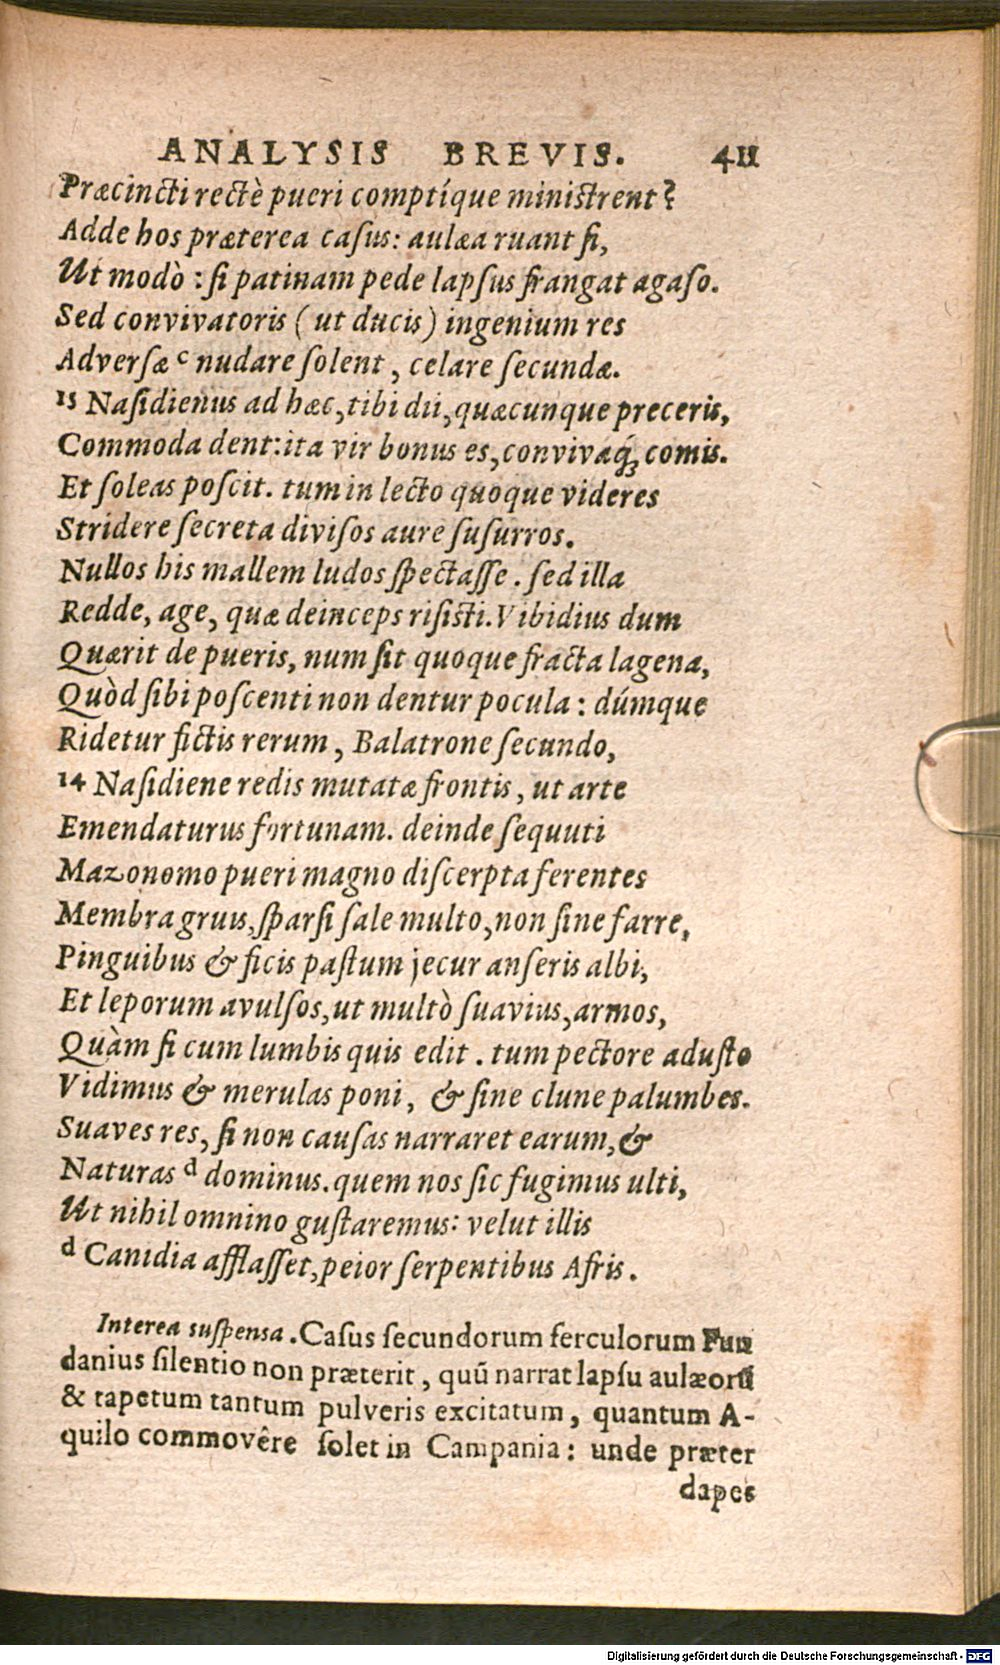 ANALYSIS BREVIS. 411
Præcincti rectè pueri comptíque ministrent?
Adde hos præterea casus: aulæa ruant si,
Ut modò : si patinam pede lapsus frangat agaso.
Sed convivatoris ( ut ducis) ingenium res
Adversæ c nudare solent , celare secundæ.
15 Nasidienus ad hæc, tibi dii, quæcunque preceris,
Commoda dent: ita vir bonus es, convivaq́; comis.
Et soleas poscit. tum in lecto quoque videres
Stridere secreta divisos aure susurros.
Nullos his mallem ludos spectasse . sed illa
Redde, age, quæ deinceps risisti. Vibidius dum
Quærit de pueris, num sit quoque fracta lagena,
Quòd sibi poscenti non dentur pocula : dúmque
Ridetur fictis rerum , Balatrone secundo,
14 Nasidiene redis mutatæ frontis , ut arte
Emendaturus fortunam. deinde sequuti
Mazonomo pueri magno discerpta ferentes
Membra gruis, sparsi sale multo, non sine farre,
Pinguibus & ficis pastum jecur anseris albi,
Et leporum avulsos, ut multò suavius, armos,
Quàm si cum lumbis quis edit . tum pectore adusto
Vidimus & merulas poni , & sine clune palumbes.
Suaves res, si non causas narraret earum, &
Naturas d dominus. quem nos sic fugimus ulti,
Ut nihil omnino gustaremus: velut illis
d Canidia afflasset, peior serpentibus Afris .
Interea suspensa . Casus secundorum ferculorum Fun
danius silentio non præterit , quū narrat lapsu aulæorū
& tapetum tantum pulveris excitatum, quantum A-
quilo commovêre solet in Campania: unde præter
dapes
Digitalisierung gefördert durch die Deutsche Forschungsgemeinschaft - DFG